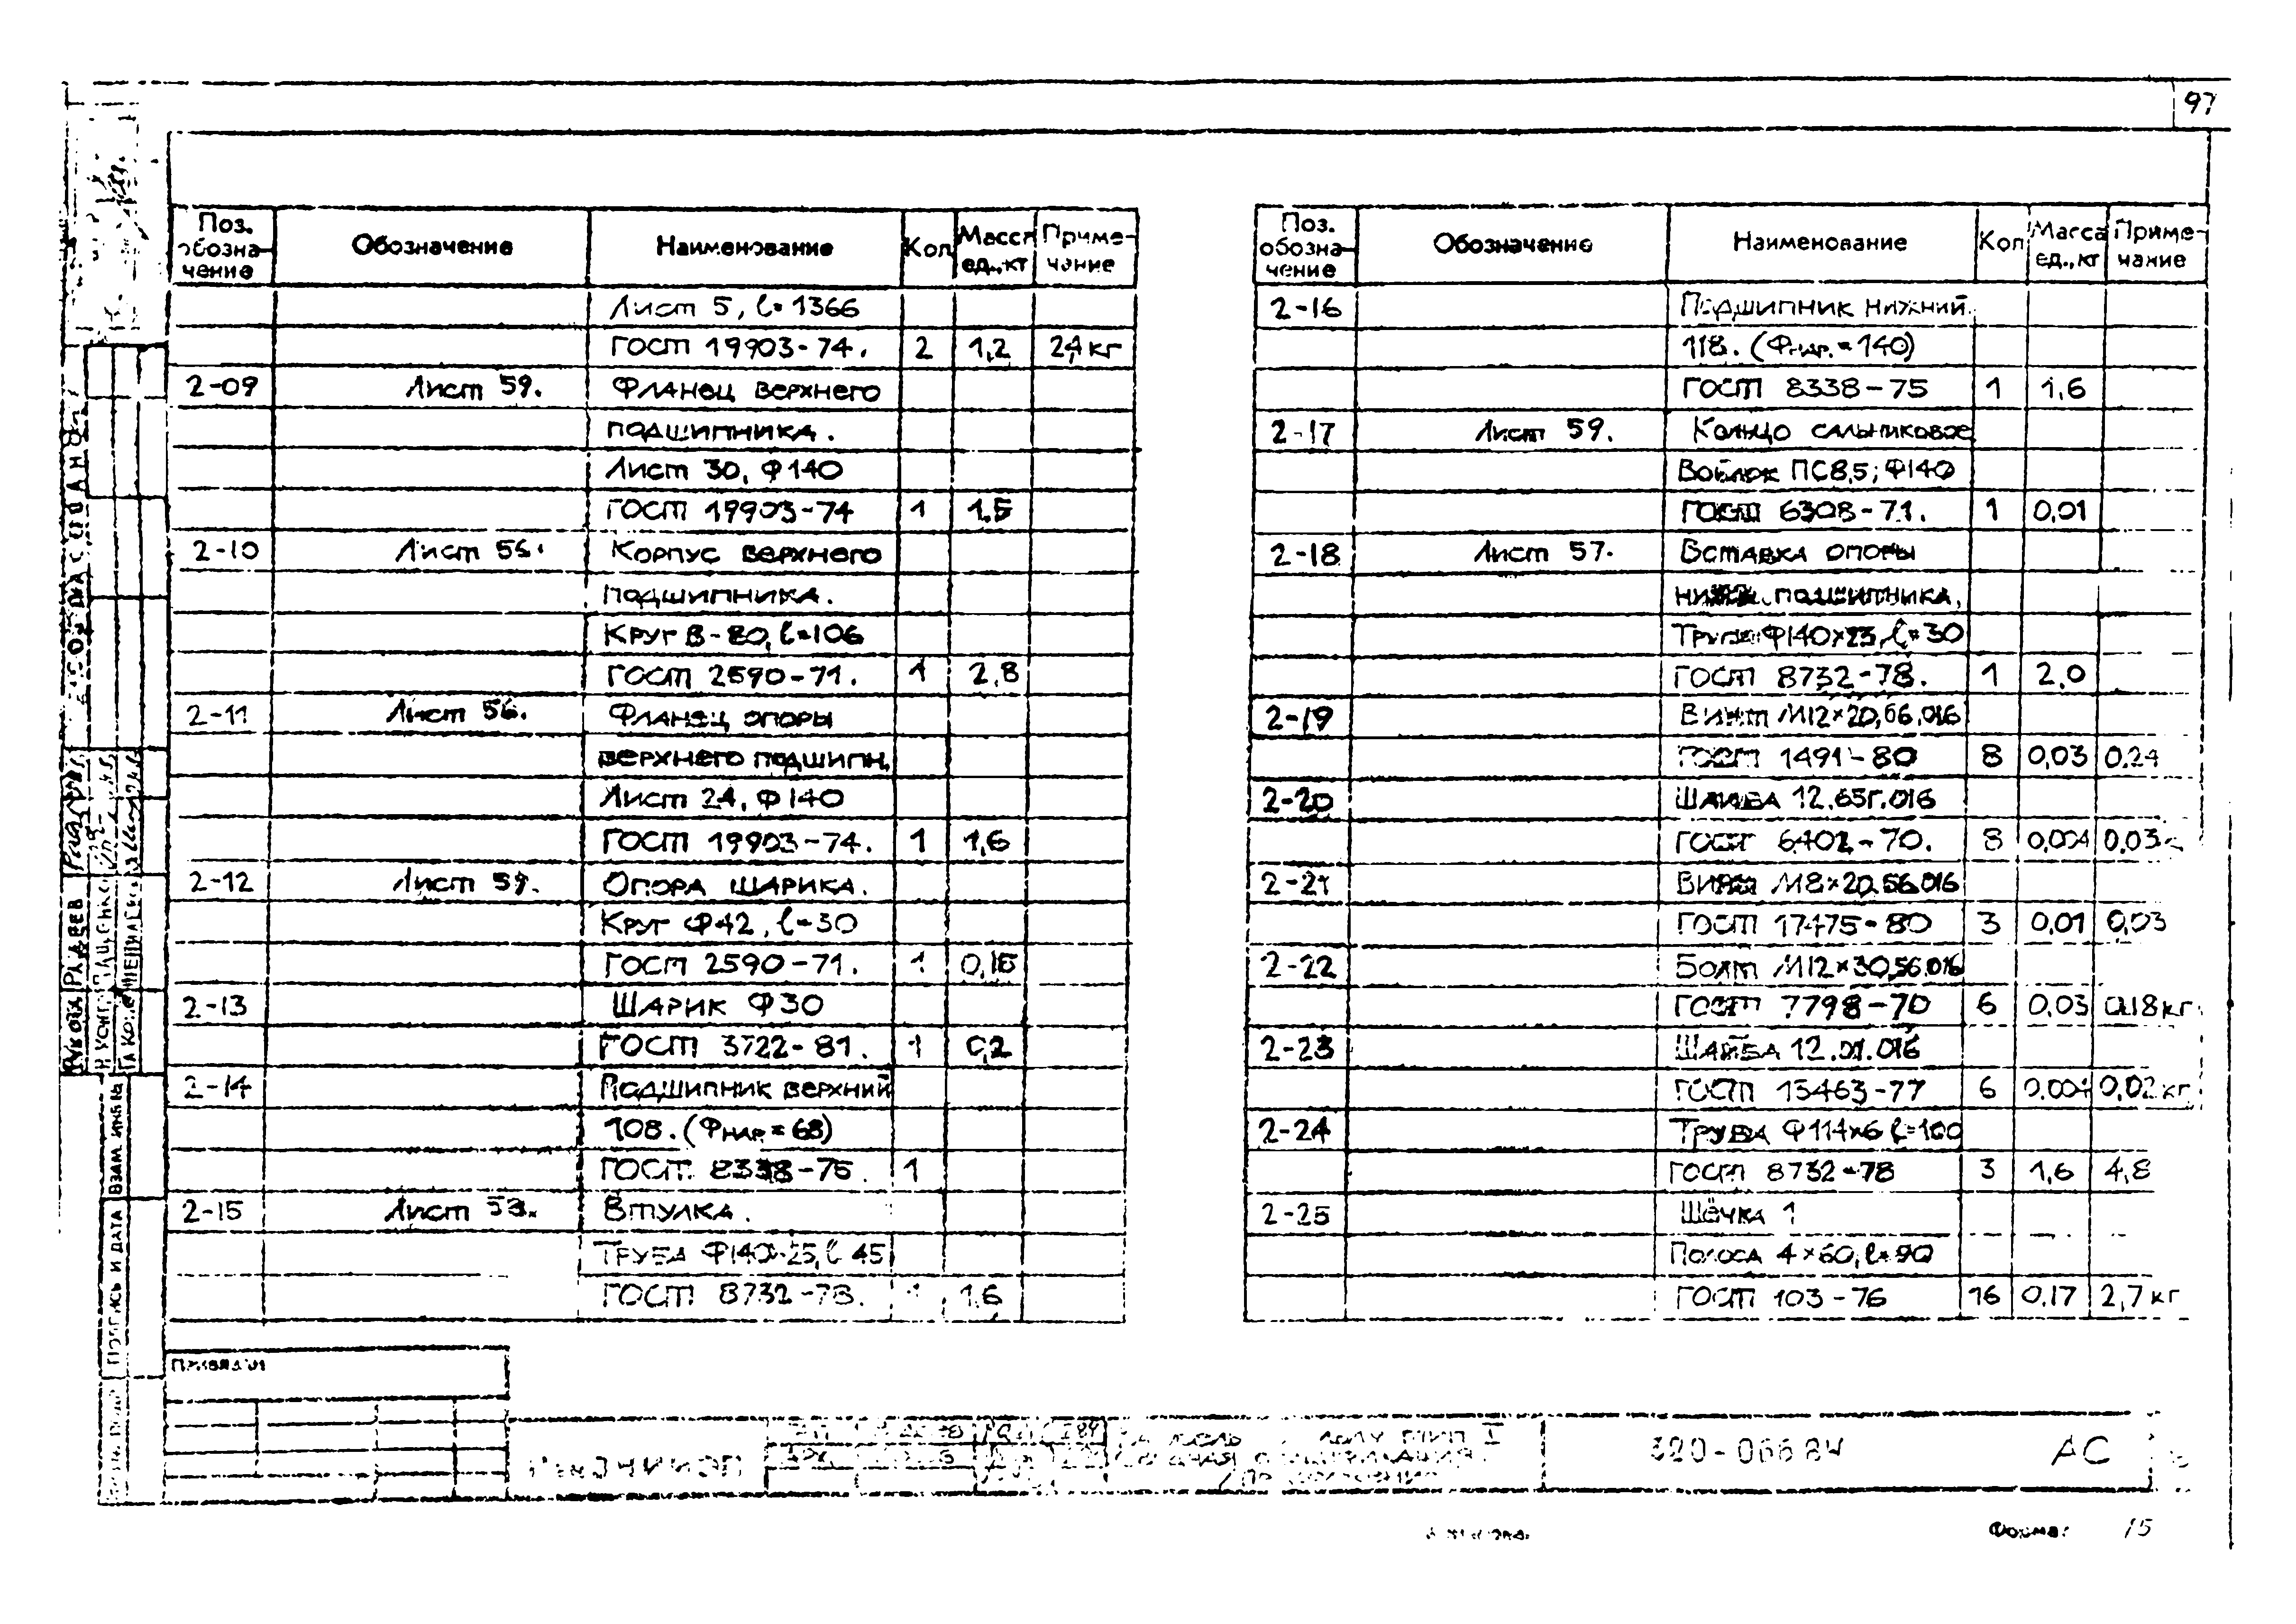 97
Поз. обозна-чение Обозначение Наименование Кол Масса ед.,кг Приме-чание
Лист 5, ℓ=1366
ГОСТ 19903-74. 2 1,2 2,4 кг
2-09 Лист 59. Фланец верхнего
подшипника.
Лист 30, Ф140
ГОСТ 19903-74 1 1.5
2-10 Лист Корпус верхнего
подшипника.
Круг В-80, ℓ=106
ГОСТ 2590-71. 1 2,8
2-11 Лист 56. Фланец опоры
верхнего подшипн.
Лист 24, Ф140
ГОСТ 19903-74. 1 1,6
2-12 Лист Опора шарика.
Круг Ф42, ℓ=30
ГОСТ 2590-71. 1
2-13 Шарик Ф30
ГОСТ 3722-81. 1 0,2
2-14 Подшипник верхний
108. (Фнар.=68)
ГОСТ 8338-75. 1
2-15 Лист Втулка.
Труба Ф140×25, ℓ 45
ГОСТ 8732-78. 1 1,6
Поз. обозна-чение Обозначение Наименование Кол Масса ед.,кг Приме-чание
2-16 Подшипник нижний
118. (Фнар.=140)
ГОСТ 8338-75 1 1,6
2-17 Лист 59. Кольцо сальниковое
Войлок ПС8,5; Ф140
ГОСТ 6308-71. 1 0,01
2-18 Лист 57. Вставка опоры
подшипника,
Труба Ф140×23, ℓ=30
ГОСТ 8732-78. 1 2,0
2-19 Винт М12×20,66.016
ГОСТ 1491-80 8 0,03 0.24
2-20 Шайба 12.65Г.016
ГОСТ 6402-70. 8 0,004 0,03
2-21 Винт М8×20.56.016
ГОСТ 17475-80 3 0,01 0,03
2-22 Болт М12×30,56.016
ГОСТ 7798-70 6 0,03 0.18кг
2-23 Шайба 12.01.016
ГОСТ 15463-77 6 0.004 0,02кг
2-24 Труба Ф114×6 ℓ=100
ГОСТ 8732-78 3 1,6 4,8
2-25 Щёчка 1
Полоса 4×60, ℓ=90
ГОСТ 103-76 16 0,17 2,7 кг
Привязан
320-066 84 АС
Формат 15
СОГЛАСОВАНО
РАДЕЕВ
ПОДПИСЬ И ДАТА
ВЗАМ. ИНВ №